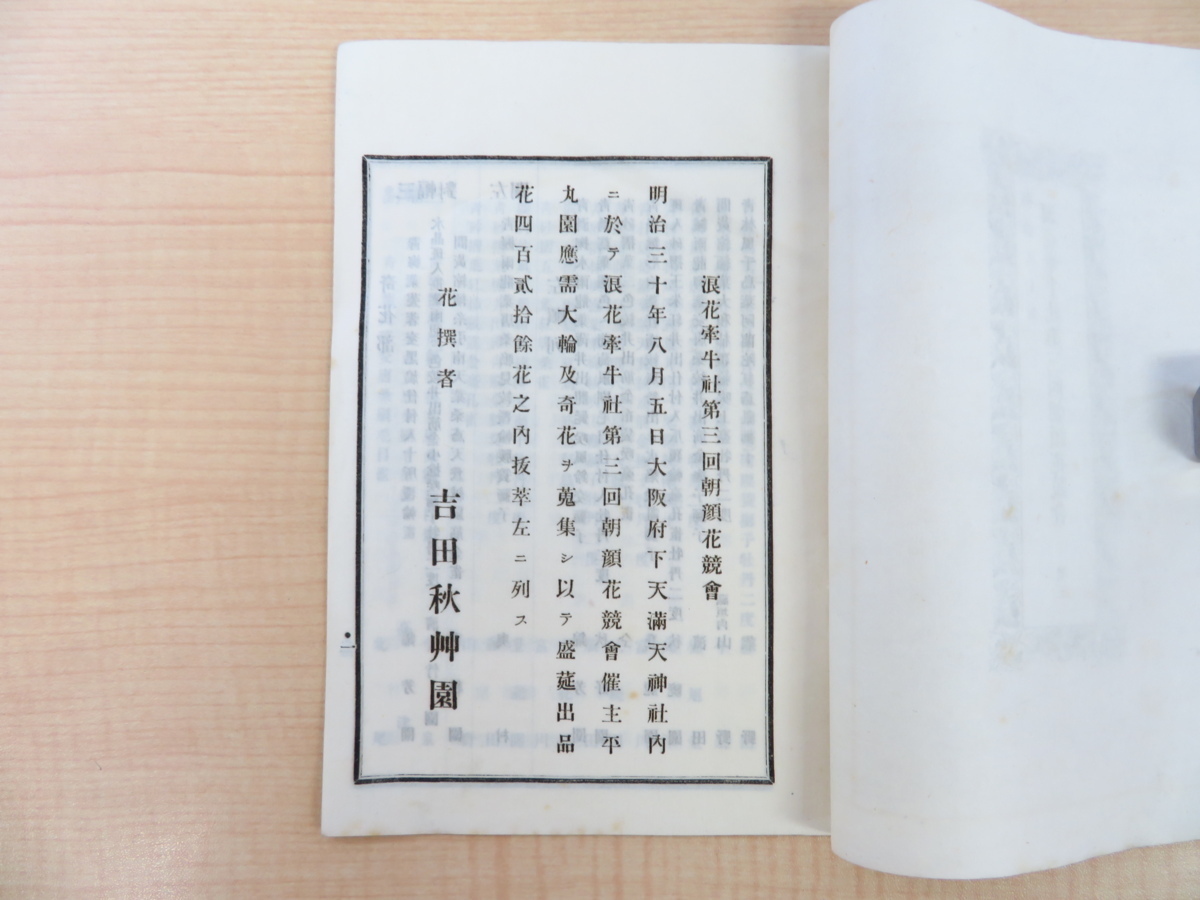 浪花牽牛社第三回朝顏花競會
明治三十年八月五日大阪府下天滿天神社內
ニ於テ浪花牽牛社第三回朝顏花競會催主平
丸園應需大輪及奇花ヲ蒐集シ以テ盛莚出品
花四百貳拾餘花之內拔萃左ニ列ス
花撰者 吉田秋艸園
一